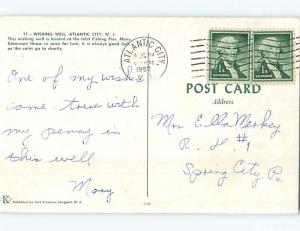 11 - WISHING WELL, ATLANTIC CITY, N. J.
This wishing well is located at the Inlet Fishing Pier. Many
fishermen throw in coins for luck; it is always good fun
as the coins go to charity.
ATLANTIC CITY
1957
POST CARD
Address
One of my wishes
came true with
my penny in
this well
Mary
Mrs Ella Merkey
R. H. #1
Spring City Pa
K
Published by Jack Freeman, Longport, N. J.